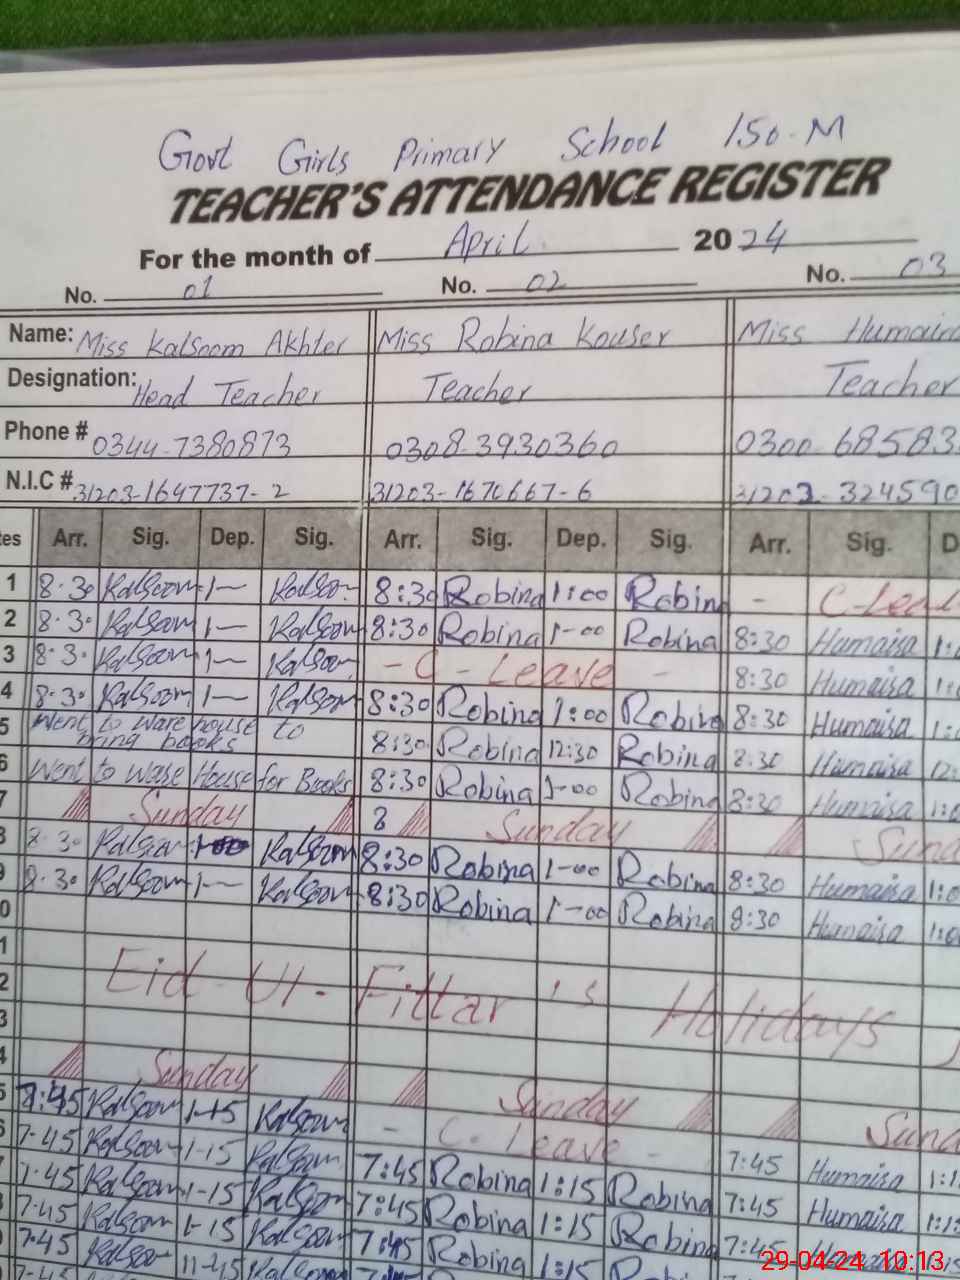 Govt Girls Primary School 150-M
TEACHER'S ATTENDANCE REGISTER
For the month of April 2024
No. 01 No. 02 No. 03
Name: Miss Kalsoom Akhter Miss Robina Kouser Miss Humaira
Designation: Head Teacher Teacher Teacher
Phone # 0344-7380873 0308-3930360 0300-68583
N.I.C # 31203-1647737-2 31203-1670667-6 31203-324590
tes Arr. Sig. Dep. Sig. Arr. Sig. Dep. Sig. Arr. Sig. D
1 8-30 Kalsoom 1— Kalsoom 8:30 Robina 1:00 Robina - C-Leave
2 8-30 Kalsoom 1— Kalsoom 8:30 Robina 1-00 Robina 8:30 Humaisa 1:
3 8-30 Kalsoom 1— Kalsoom - C - Leave - 8:30 Humaisa 1:
4 8-30 Kalsoom 1— Kalsoom 8:30 Robina 1:00 Robina 8:30 Humaisa 1:
5 Went to ware house to bring books 8:30 Robina 12:30 Robina 8:30 Humaisa 12:
6 Went to Ware House for Books 8:30 Robina 1-00 Robina 8:30 Humaisa 1:0
7 Sunday 8 Sunday Sunda
8 8-30 Kalsoom Kalsoom 8:30 Robina 1-00 Robina 8:30 Humaisa 1:0
9 8-30 Kalsoom 1— Kalsoom 8:30 Robina 1-00 Robina 8:30 Humaisa 1:0
0
1
2 Eid-Ul-Fittar's Holidays
3
4 Sunday Sunday Sund
5 7:45 Kalsoom 1-15 Kalsoom - C. Leave - 7:45 Humaisa 1:1
6 7-45 Kalsoom 1-15 Kalsoom 7:45 Robina 1:15 Robina 7:45 Humaisa 1:1
7-45 Kalsoom 1-15 Kalsoom 7:45 Robina 1:15 Robina 7:45
7-45 Kalsoom 1-15 Kalsoom 7:45 Robina 1:15
7-45 Kalsoom 11-45 Kalsoom
29-04-24 10:13